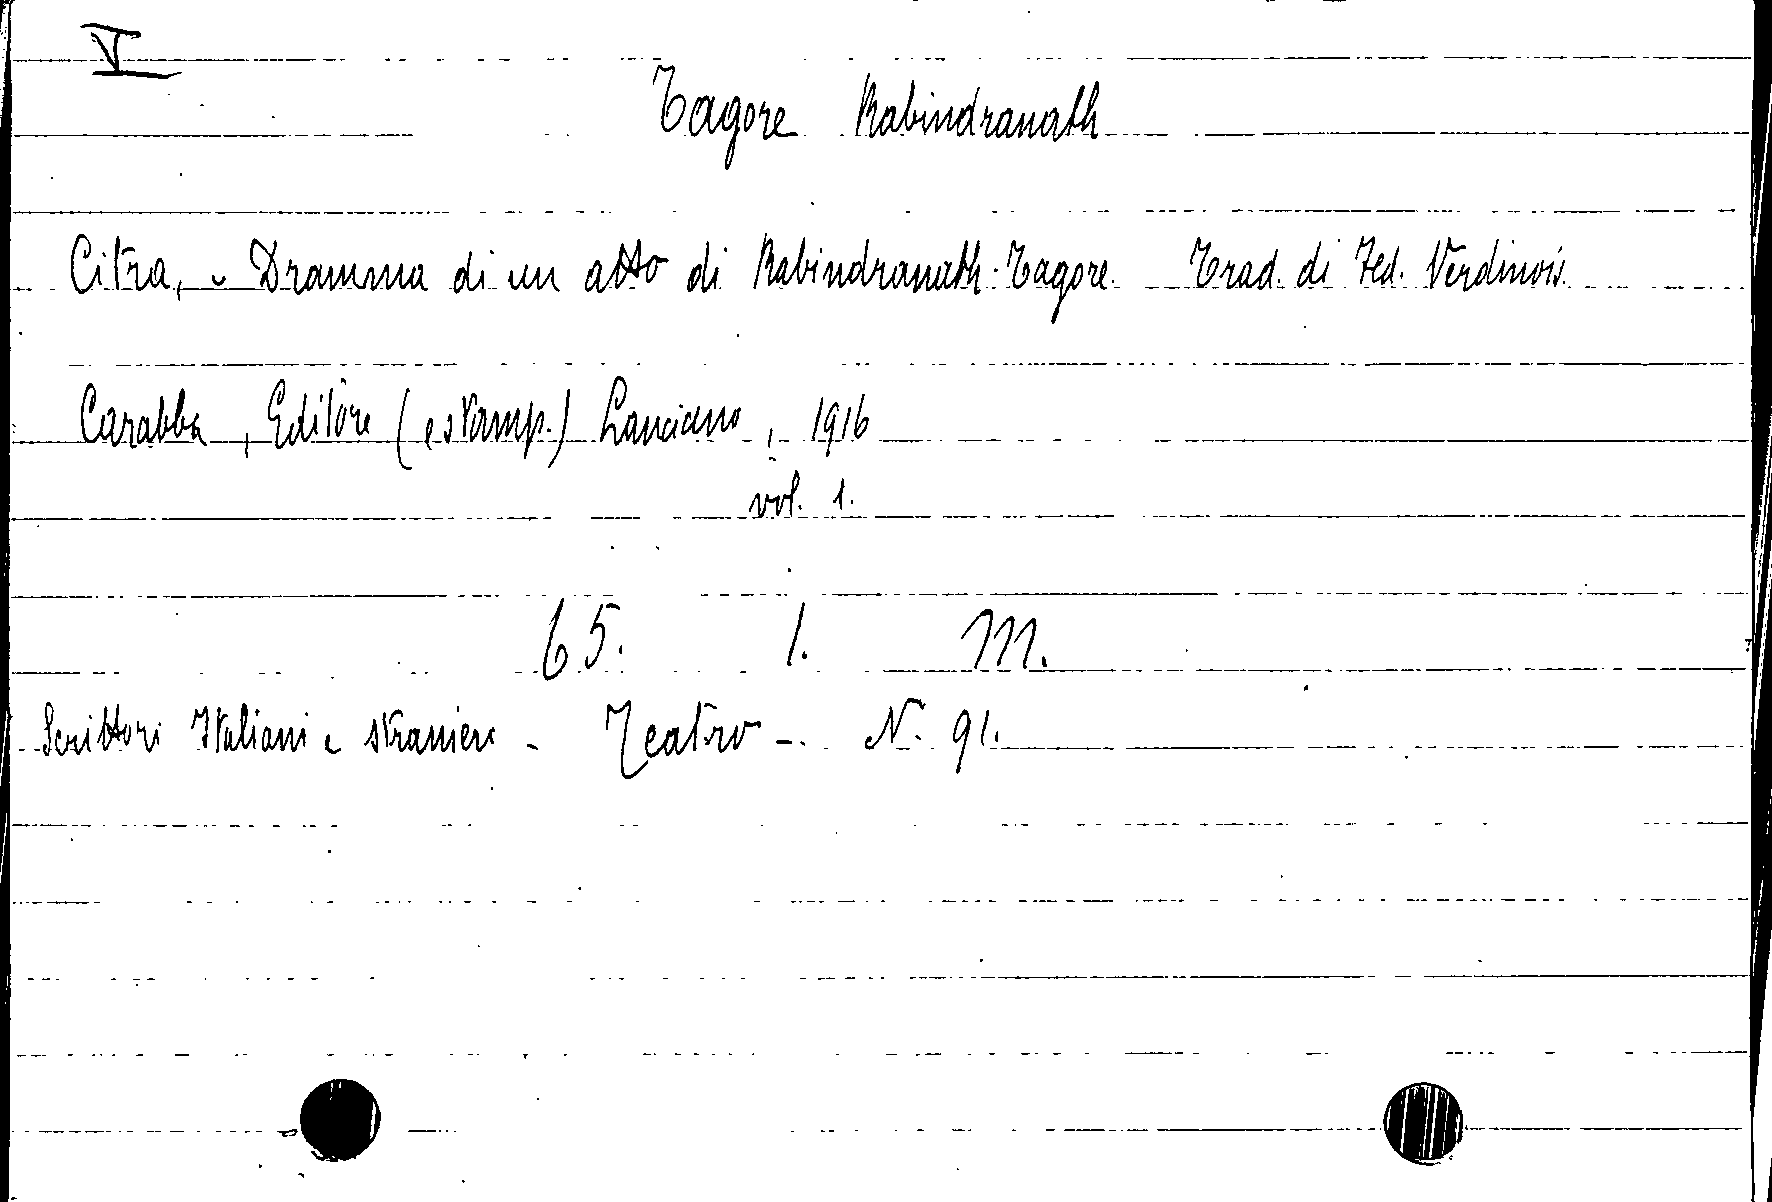 V
Tagore Rabindranath
Citra, - Dramma di un atto di Rabindranath-Tagore. Trad. di Fed. Verdinois.
Carabba, Editore (e stamp.) Lanciano, 1916
vol. 1.
65. 1. M.
Scrittori Italiani e stranieri - Teatro - N. 91.